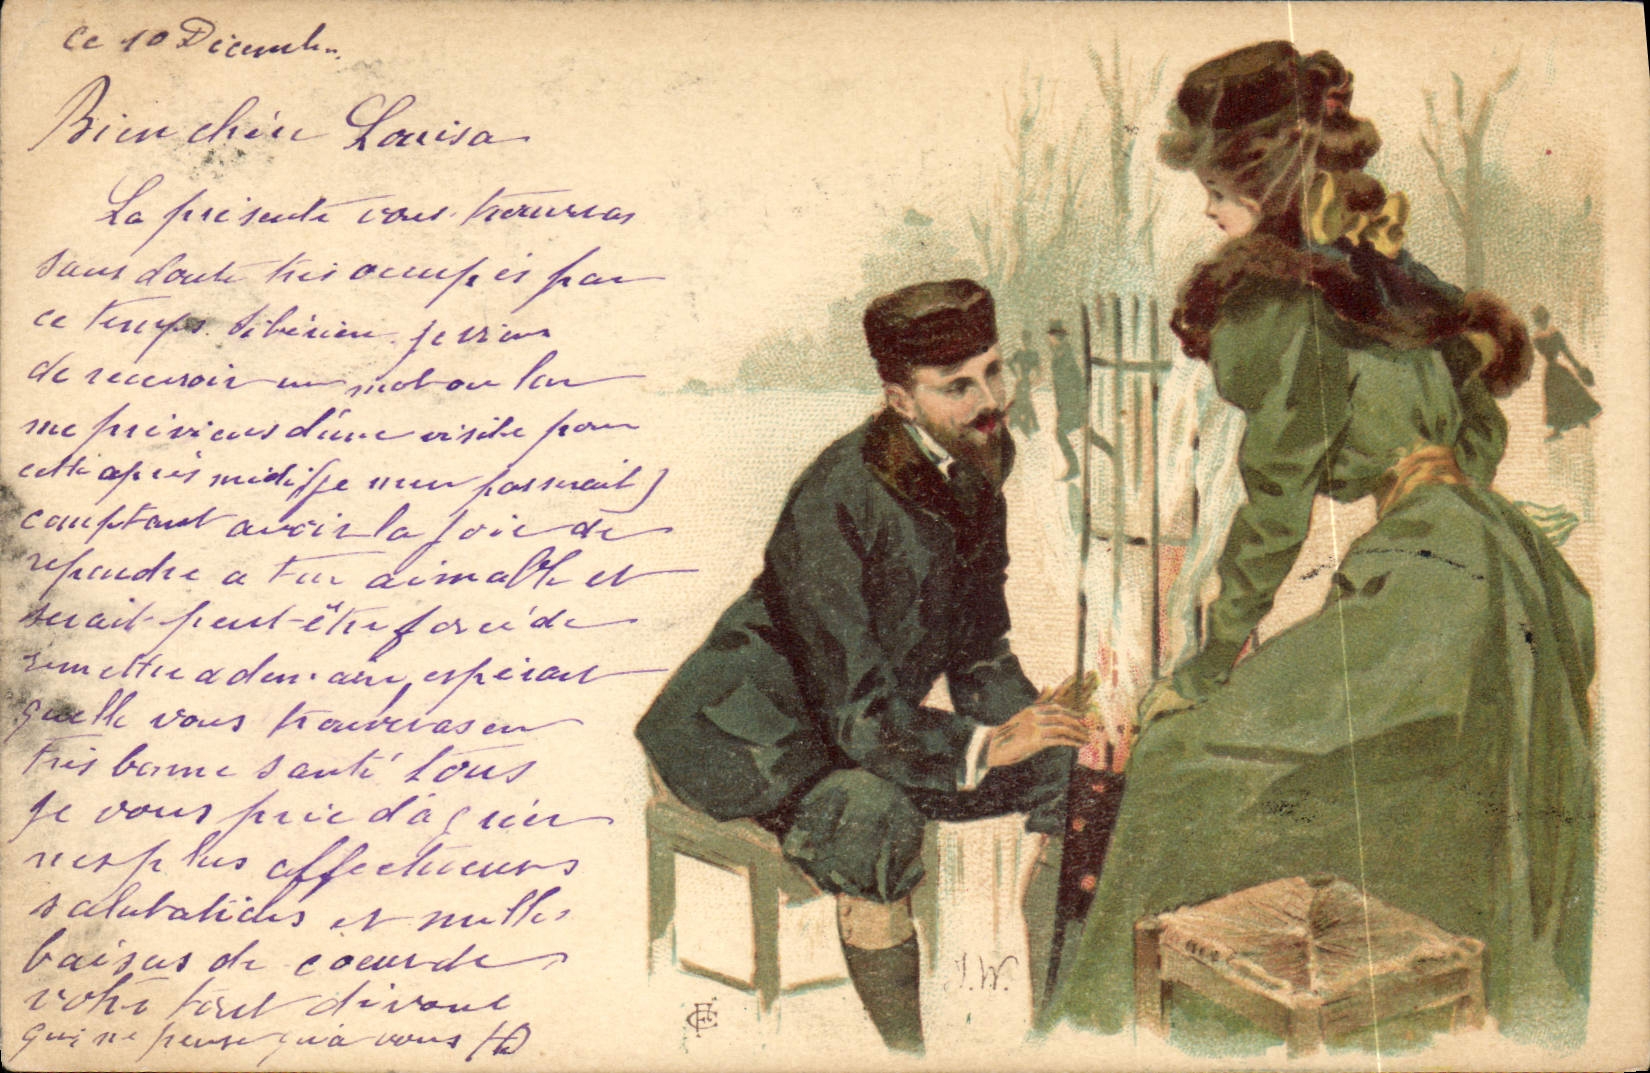 Ce 10 Décembre.
Bien chère Louisa
La présente vous trouveras
sans doute très occupés par
ce temps Sibérien. je viens
de recevoir un mot ou l'on
me previens d'une visite pour
cette après midi (je m'en passerait)
comptant avoir la joie de
repondre a ton aimable et
serait peut-être forcé de
remettre a demain, espérant
quelle vous trouveras en
très bonne santé tous
je vous prie d'agréer
mes plus affectueuses
salutations et milles
baisers de coeur de
votre tout dévoué
qui ne pense qu'a vous
J.W.